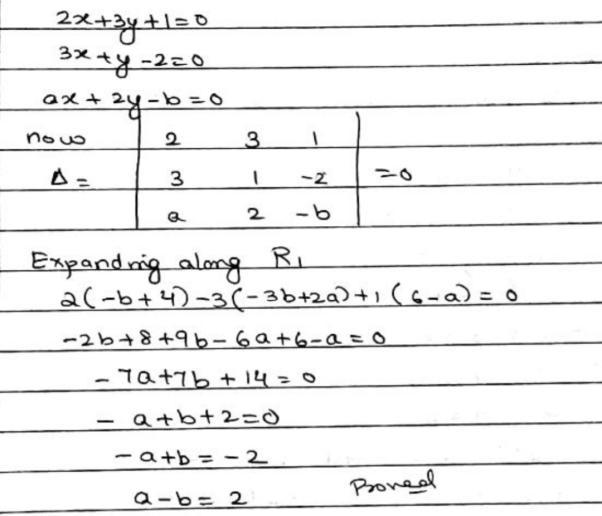 2x+3y+1=0
3x+y-2=0
ax+2y-b=0
now 2 3 1
Δ= 3 1 -2 =0
a 2 -b
Expanding along R₁
2(-b+4)-3(-3b+2a)+1(6-a)=0
-2b+8+9b-6a+6-a=0
-7a+7b+14=0
-a+b+2=0
-a+b=-2
a-b=2